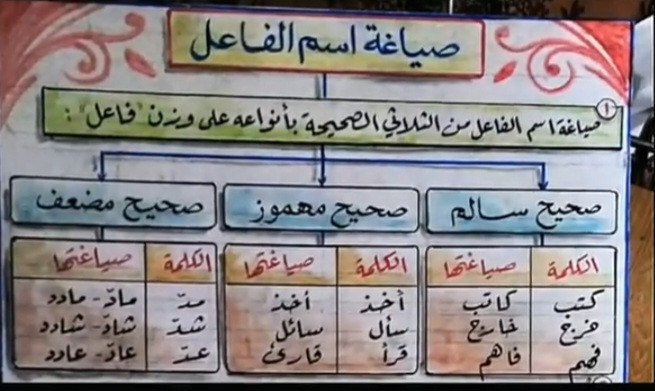 صياغة اسم الفاعل
١ صياغة اسم الفاعل من الثلاثي الصحيحة بأنواعه على وزن "فاعل":
صحيح سالم
الكلمة صياغتها
كتب كاتب
خرج خارج
فهم فاهم
صحيح مهموز
الكلمة صياغتها
أخذ أخذ
سأل سائل
قرأ قارئ
صحيح مضعف
الكلمة صياغتها
مدّ مادّ - مادد
شدّ شادّ - شادد
عدّ عادّ - عادد